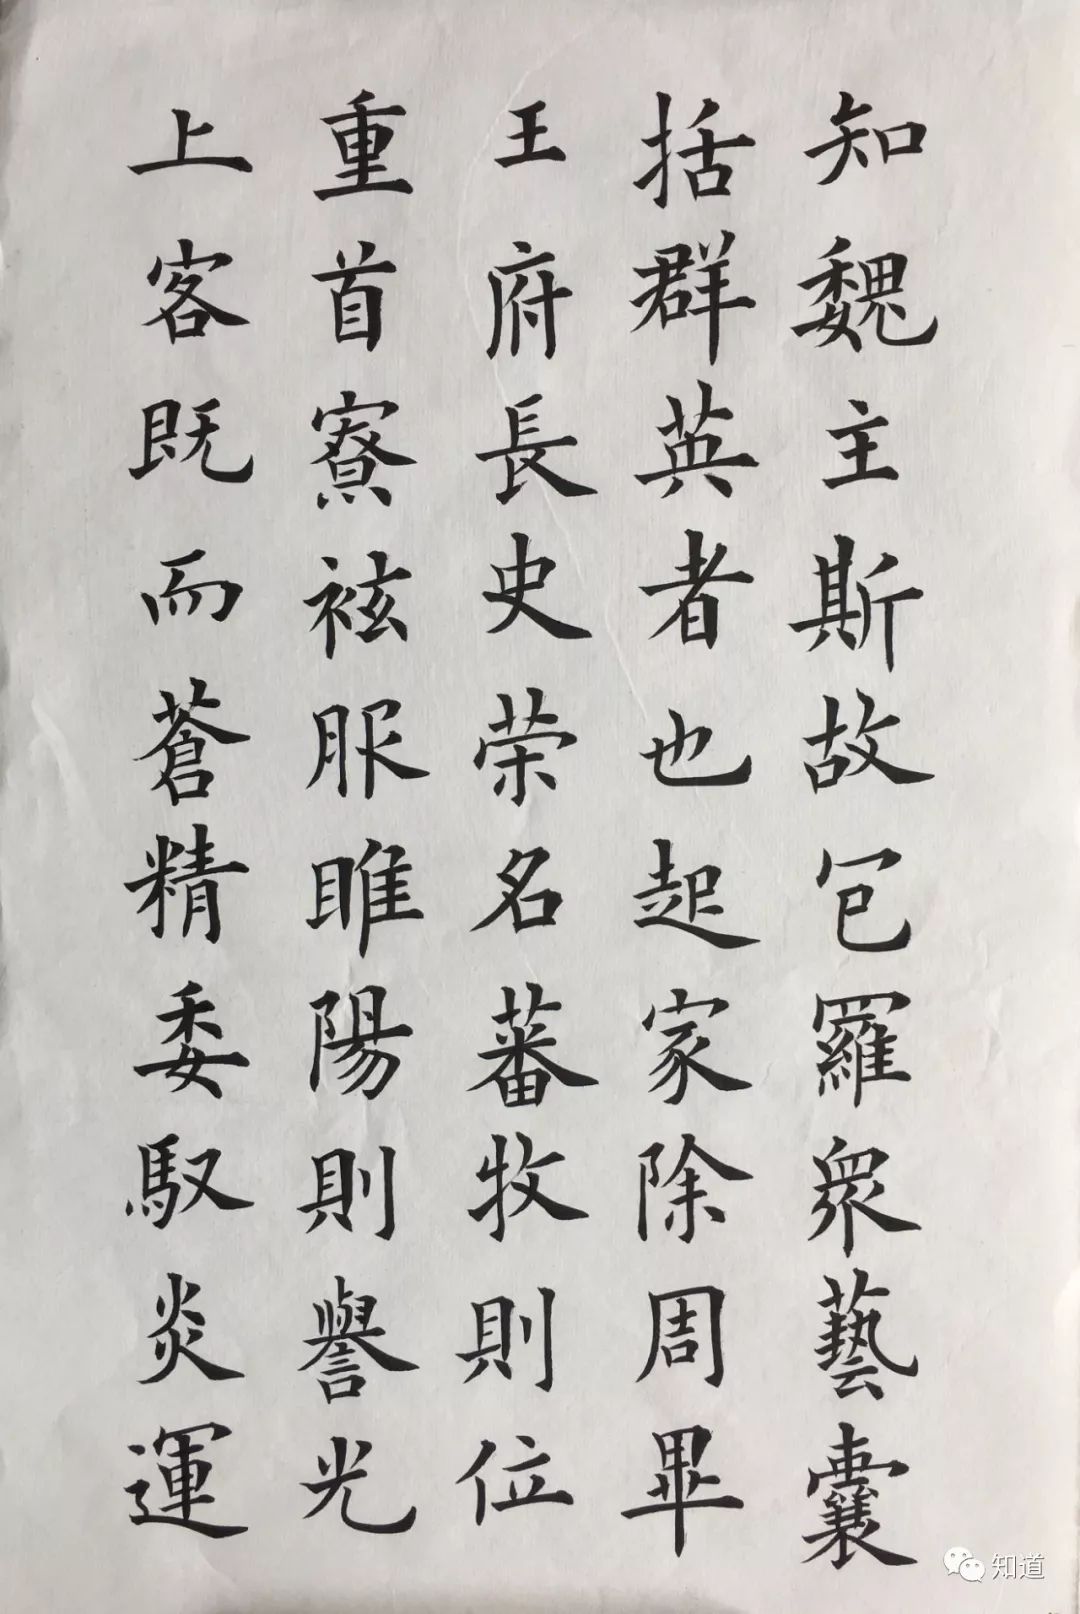 知魏主斯故包羅眾藝囊
括群英者也起家除周畢
王府長史荣名蕃牧則位
重首寮袨服睢陽則譽光
上客既而蒼精委馭炎運
知道